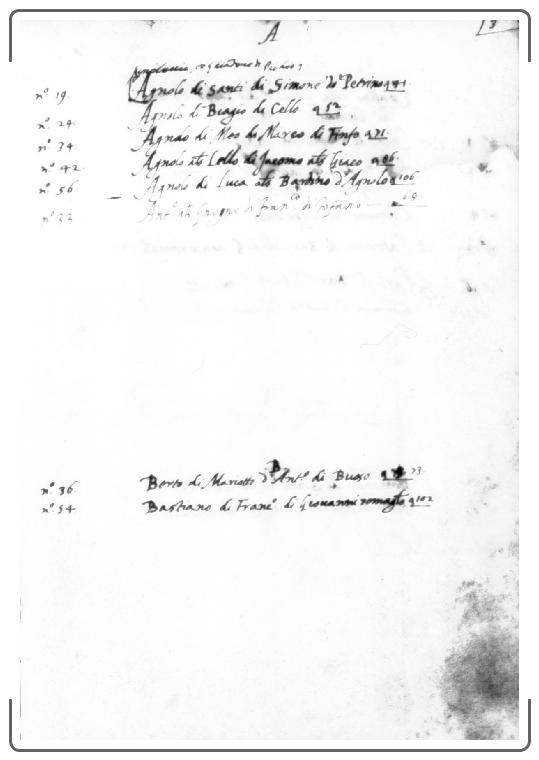 A
3
nº. 19. Agnolo di Santi di Simone dº Petrino q 41
nº. 24. Agnolo di Biagio di Cello q 52
nº. 34. Agnolo di Meo di Marco di Finfo q 71.
nº. 42 Agnolo als Lello di Jacomo als q 86.
nº. 56. Agnolo di Luca als Bardino d'Agnolo q 106
nº. 33 Antº. als di Francº di 69.
B
nº. 36. Berto di Mariotto d'Antº. di Buoso q 73.
nº. 54 Bastiano di Francº. di Giovanni romagº q 102